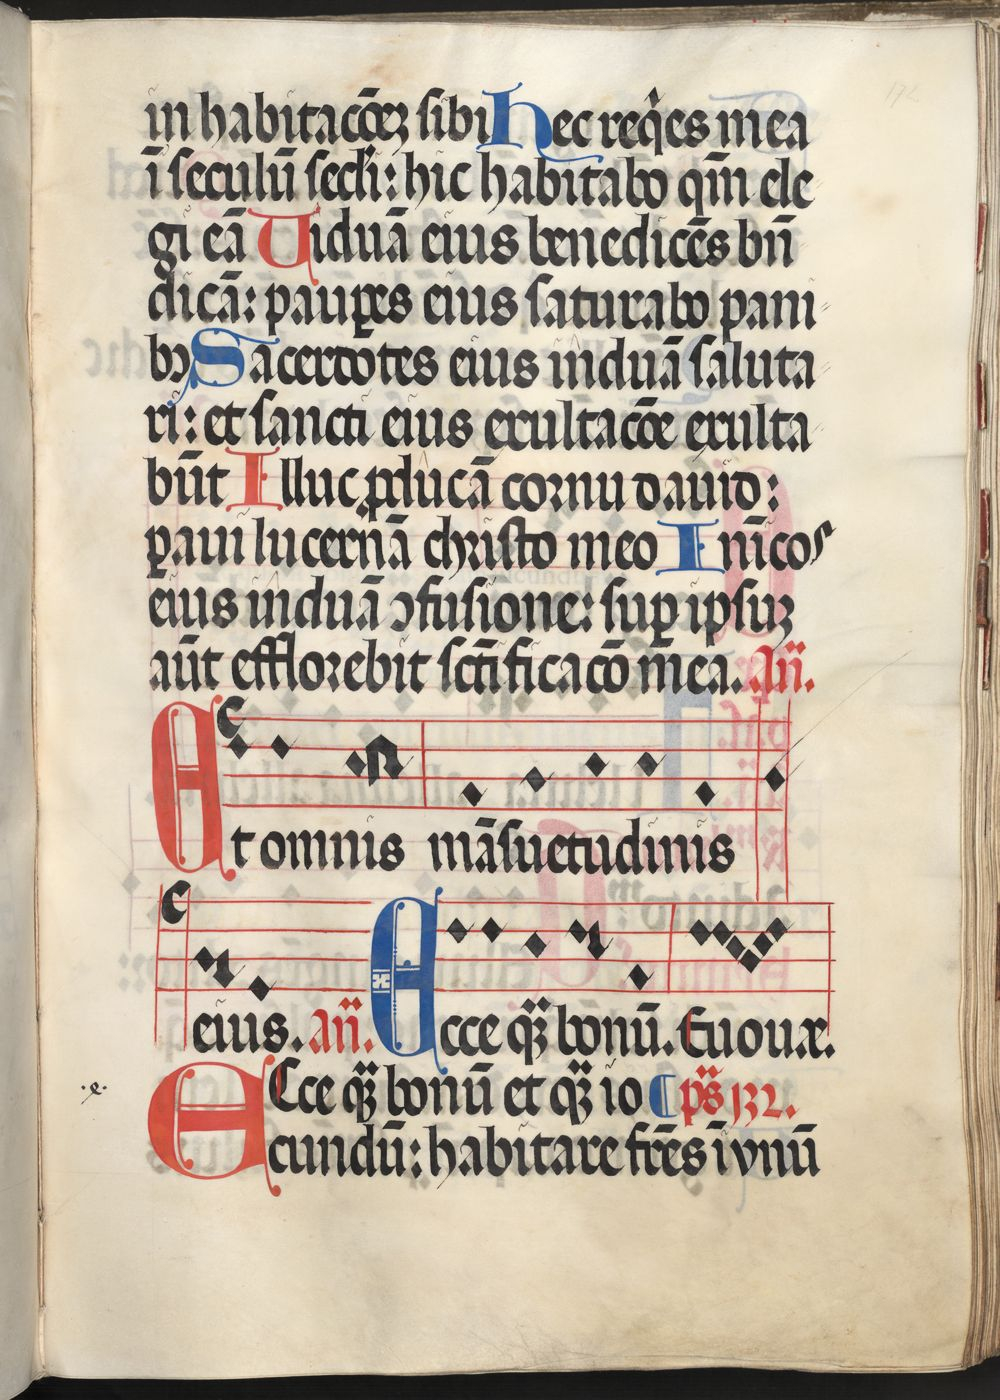 in habitacōeꝫ sibi Hec reqͥes mea
ī seculū secli: hic habitabo qm̄ ele
gi eā Uiduā eius benedicēs bn̄
dicā: pauꝑes eius saturabo pani
bꝰ Sacerdotes eius induā saluta
ri: et sancti eius exultacōe exulta
būt Illuc ꝓducā cornu dauid:
ꝑaui lucernā christo meo Inīcos
eius induā ꝯfusione: suꝑ ipsuꝫ
aūt efflorebit scīficacō mea. Añ.
Et omnis māsuetudinis
eius. Añ. Ecce qꝫ bonū. Euouæ.
.e.
Ecce qꝫ bonū et qꝫ io ps̄ 132.
cundū: habitare frēs ī vnū
172